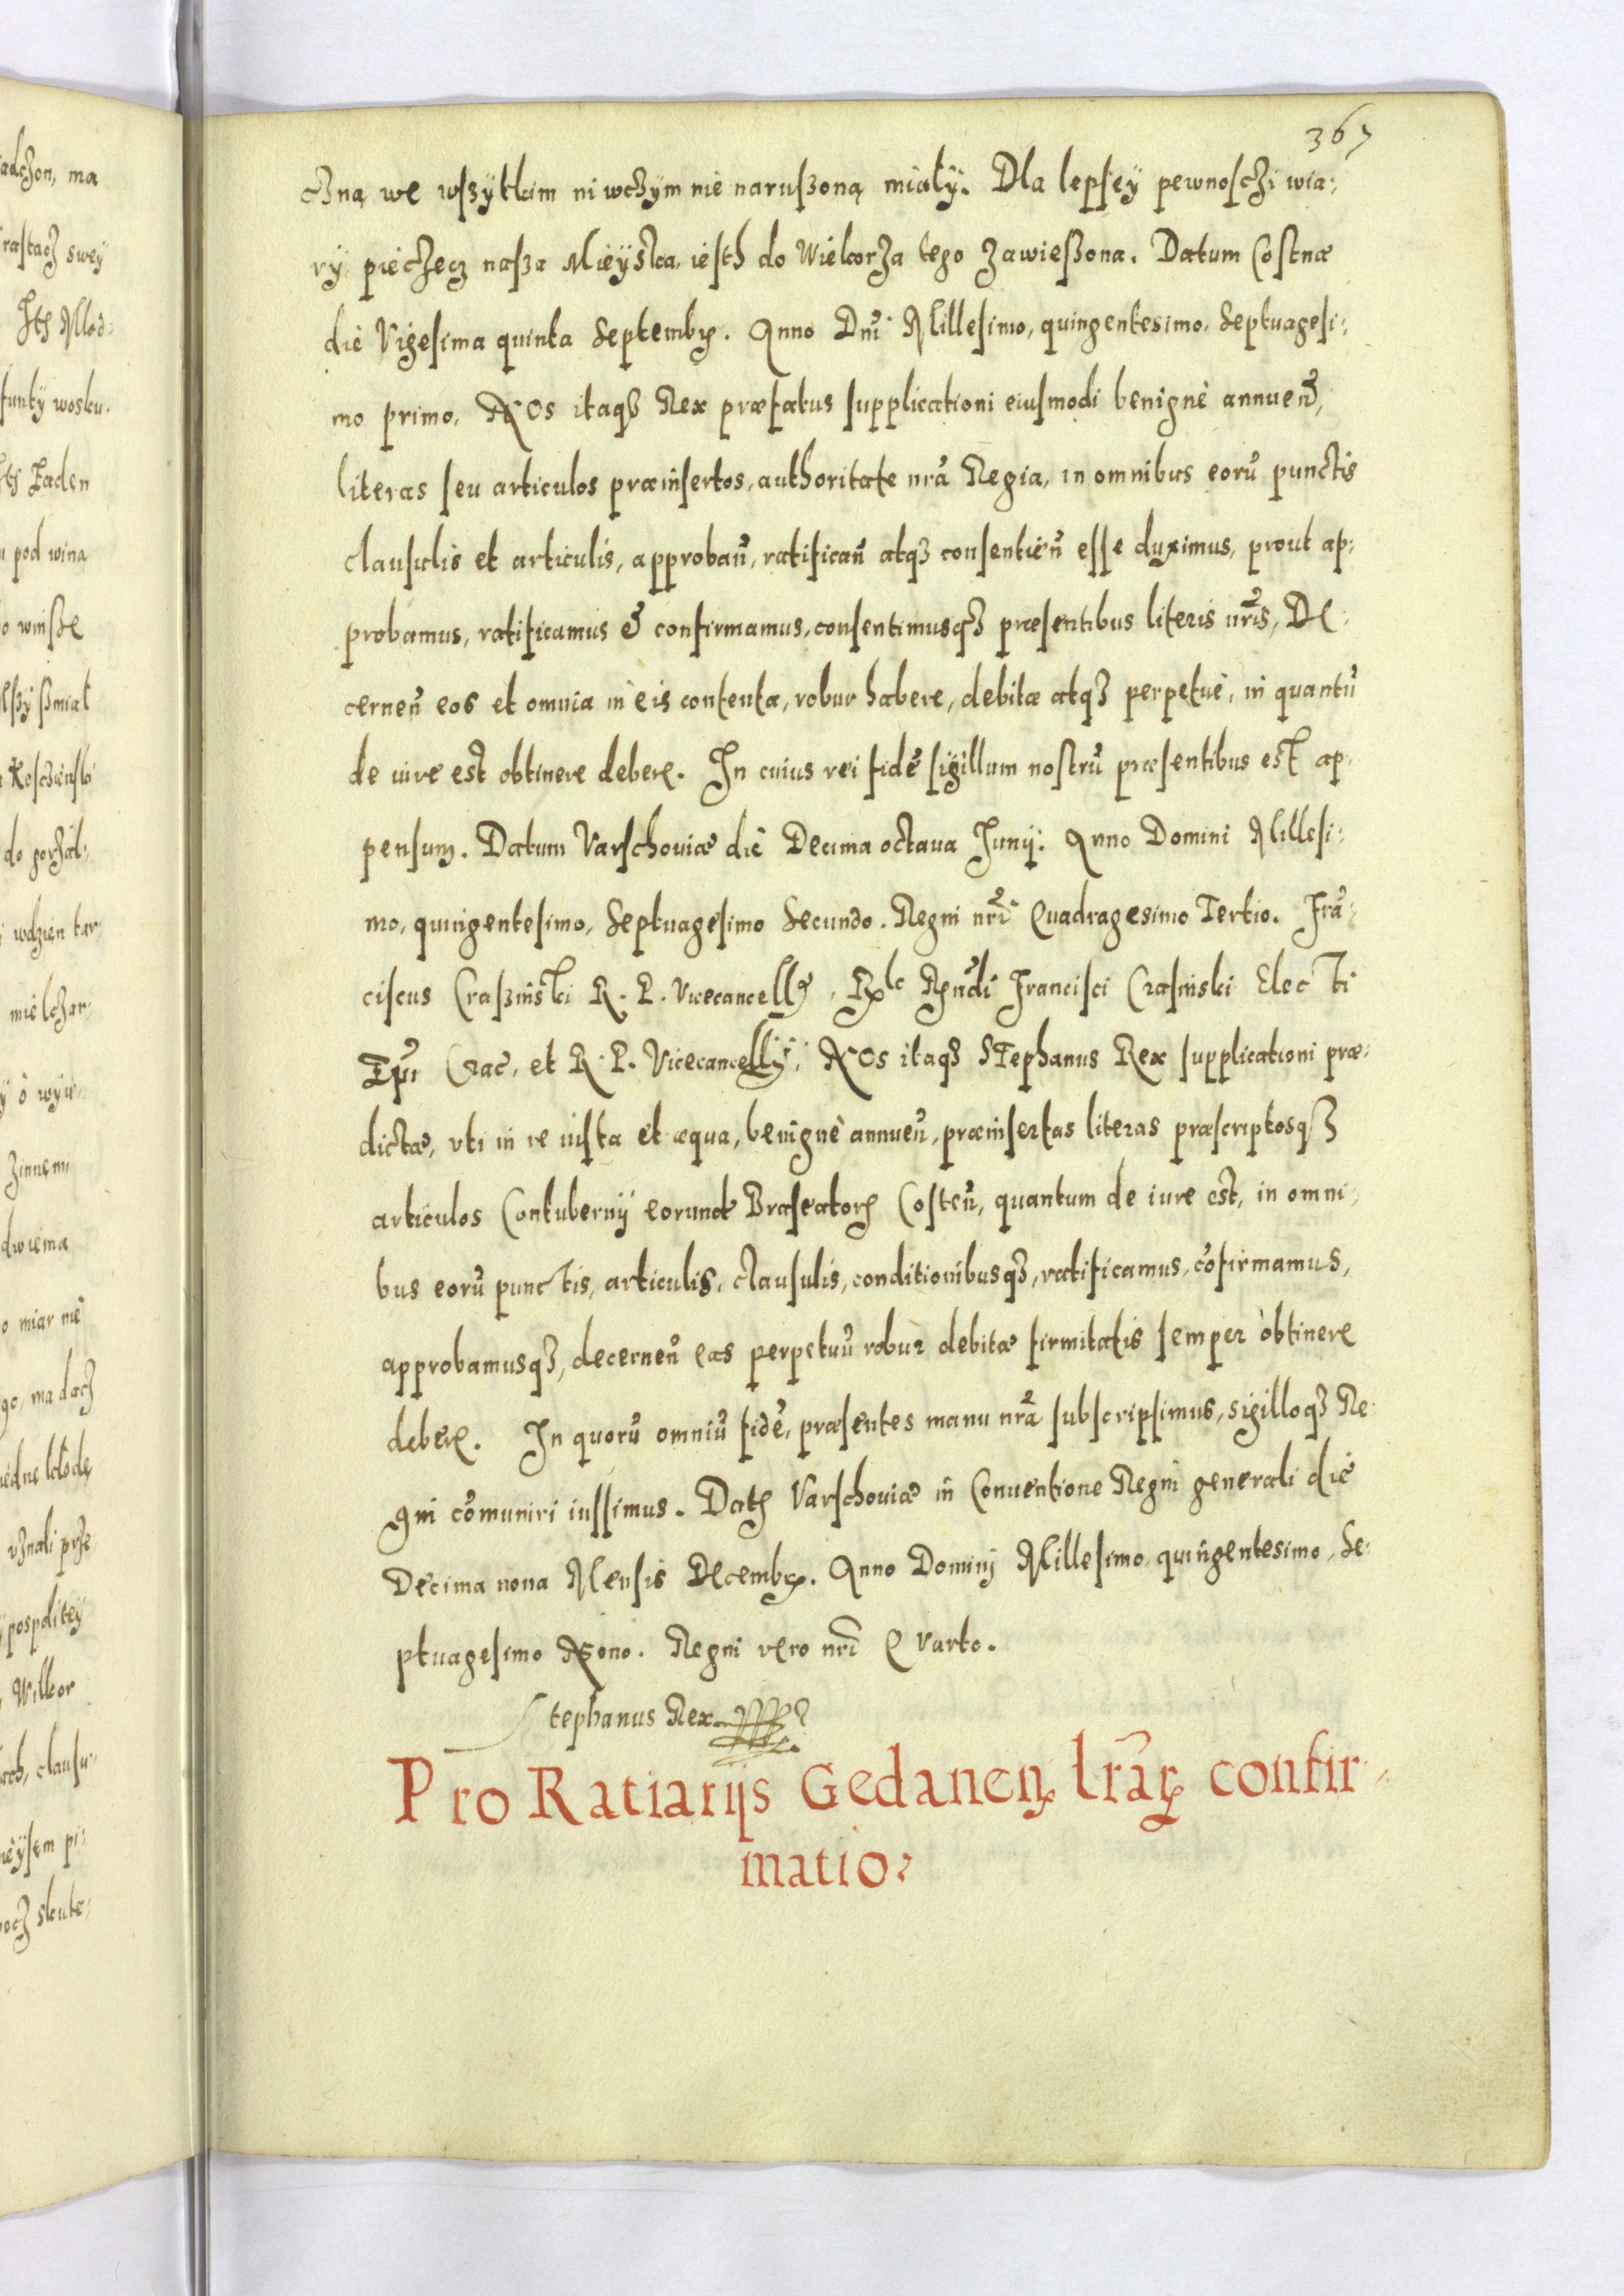 367
czną, we wszytkim ni wczym nie naruszoną miały. Dla lepsey pewnosczi wia:
ry pieczecz nasza Mieyska, iesth do Wielkorza tego zawieszona. Datum Costnæ
die Vigesima quinta Septembꝝ. Anno Dnĩ Millesimo, quingentesimo, Septuagesi:
mo primo. NOs itaqȝ Rex præfatus supplicationi eiusmodi benignè annueñ,
literas seu articulos præinsertos, authoritate nrã Regia, in omnibus eorũ punctis
clausulis et articulis, approbañ, ratificañ atqȝ consentieñ esse duximus, prout ap:
probamus, ratificamus & confirmamus, consentimusqȝ præsentibus literis nrĩs, De:
cerneñ eos et omnia in eis contenta, robur habere, debitæ atqȝ perpetuè, in quantũ
de iure est obtinere debere. In cuius rei fidẽ sigillum nostrũ præsentibus est ap:
pensum. Datum Varschouiæ die Decima octaua Junij. Anno Domini Millesi:
mo, quingentesimo, Septuagesimo Secundo. Regni nrĩ Quadragesimo Tertio. Frã:
ciscus Crasinski R. P. Vicecancellꝰ. Rxlc Rñdi Francisci Crasinski Elec ti
Epĩ Crac, et R. P. Vicecancellij. NOs itaqȝ STephanus Rex supplicationi præ:
dictæ, vti in re iusta et æqua, benignè annueñ, præinsertas literas præscriptosqȝ
articulos Contubernij eorund Braseatorꝝ Costeñ, quantum de iure est, in omni:
bus eorũ punctis, articulis, clausulis, conditionibusqȝ, ratificamus, cõfirmamus,
approbamusqȝ, decerneñ eas perpetuũ robur debitæ firmitatis semper obtinere
debere. In quorũ omniũ fidẽ, præsentes manu nrã subscripsimus, sigilloqȝ Re:
gni cõmuniri iussimus. Datꝭ Varschouiæ in Conuentione Regni generali die
Decima nona Mensis Decembꝝ. Anno Dominj Millesimo, quingentesimo, Se:
ptuagesimo Nono. Regni vero nrĩ Quarto.
Stephanus Rex
Pro Ratiarijs Gedaneñ lrãꝝ confir:
matio.